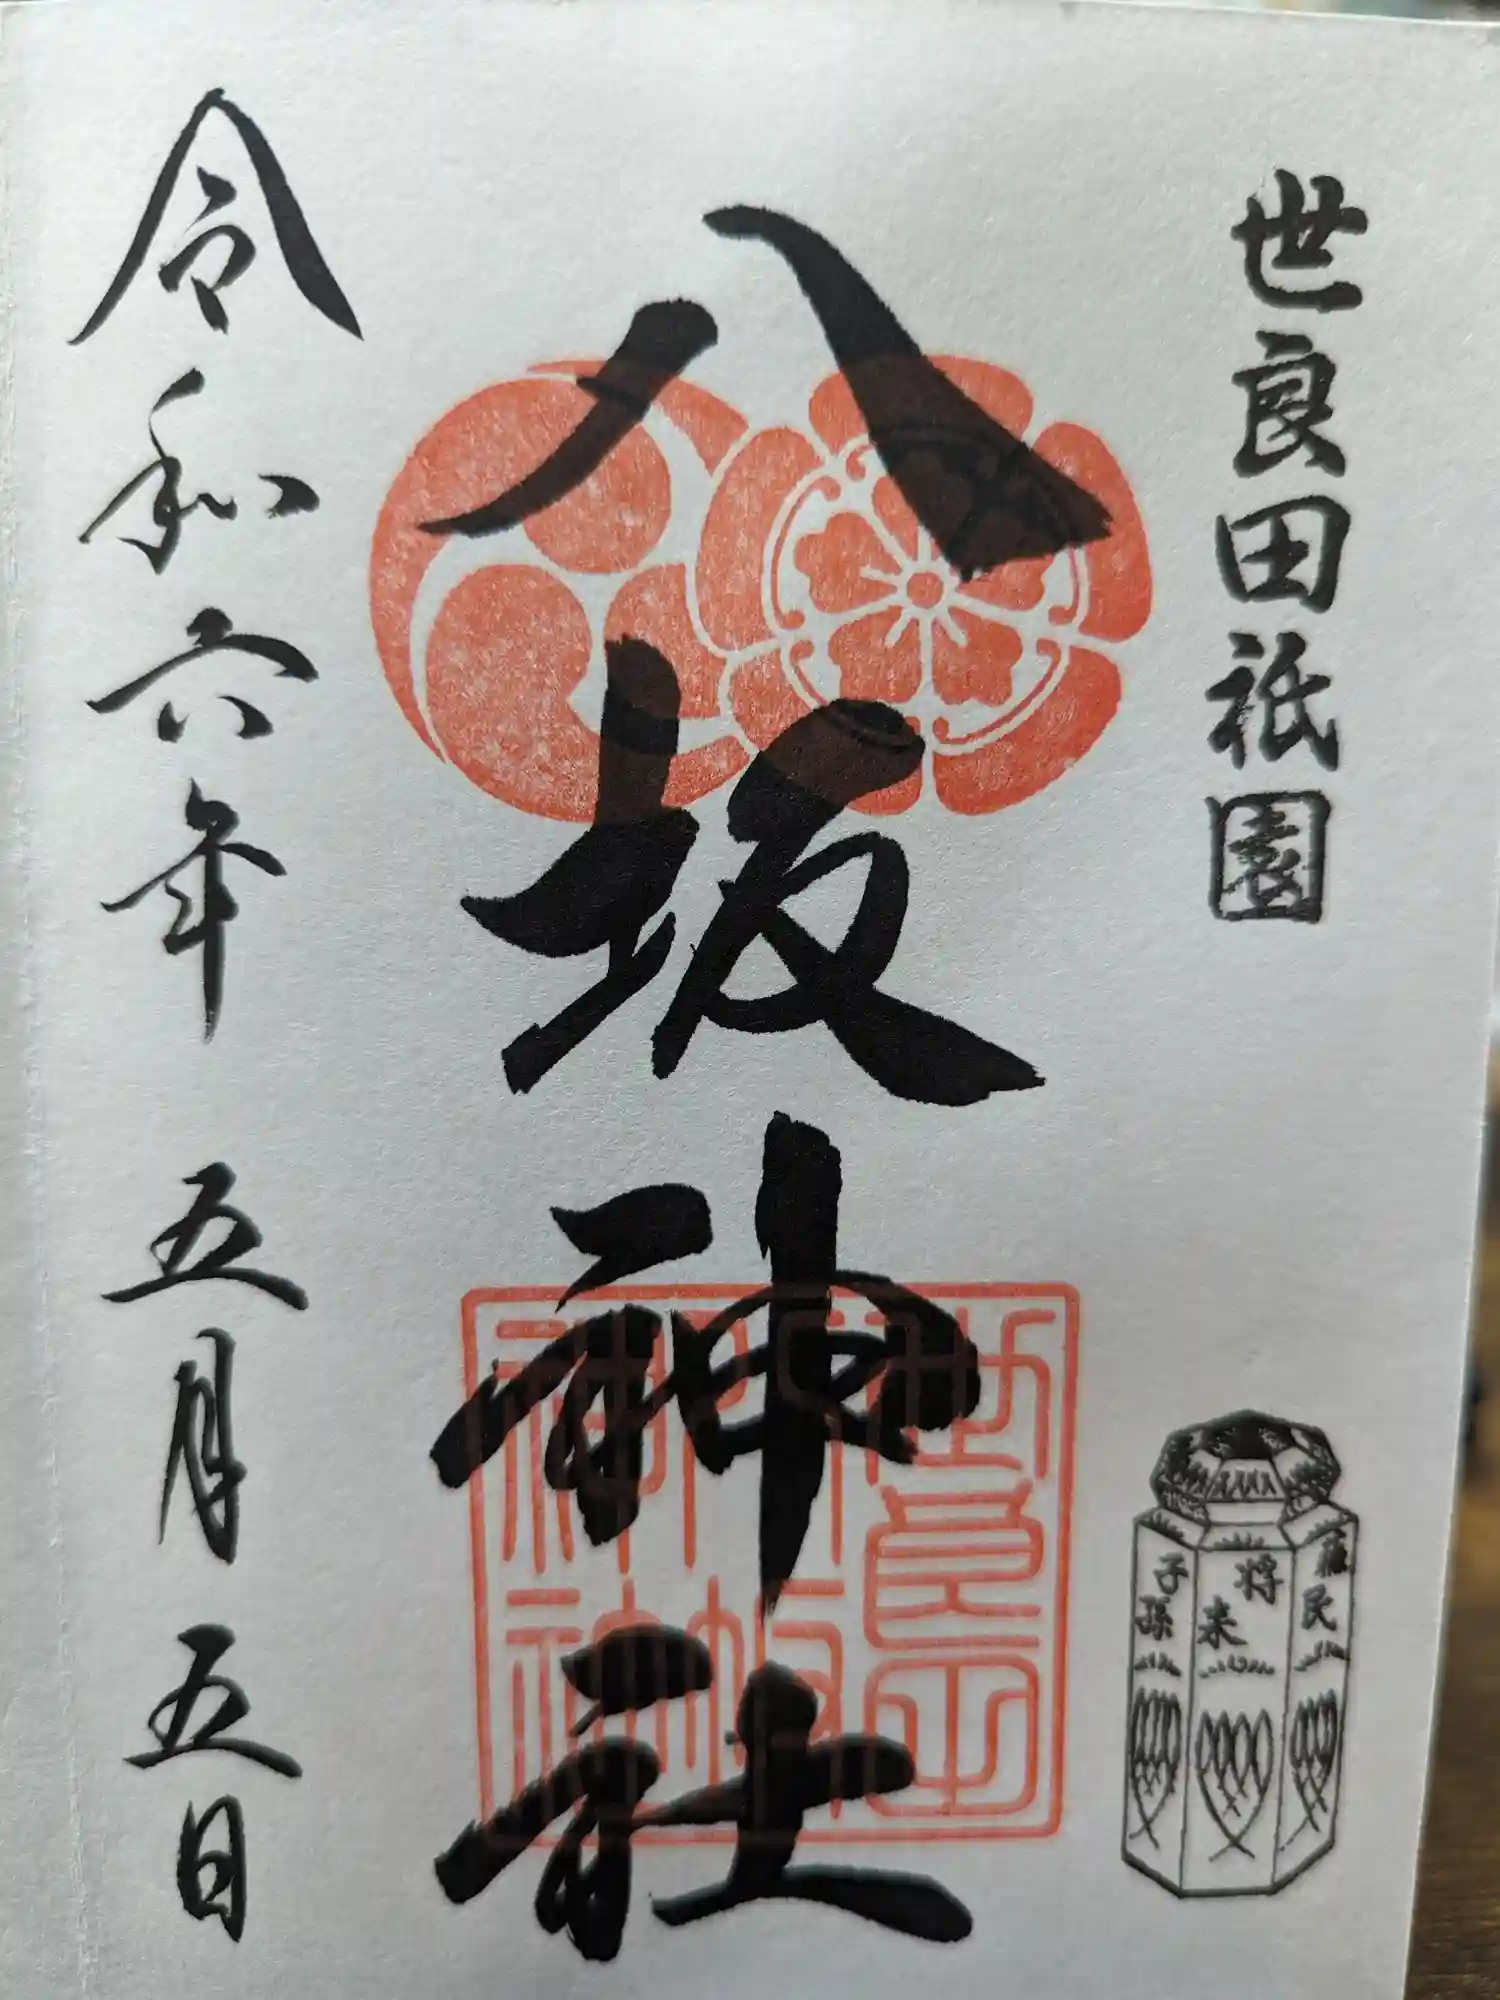 世良田祇園
八坂神社
令和六年 五月 五日
世良田
八坂
神社
蘇民
将来
子孫